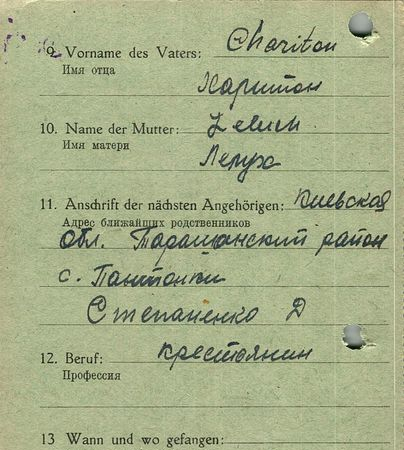 9. Vorname des Vaters: Chariton
Имя отца
Харитон
10. Name der Mutter:
Имя матери
11. Anschrift der nächsten Angehörigen: Киевская
Адрес ближайших родственников
обл. Таращанский район
с.
Степаненко Д
12. Beruf: крестьянин
Профессия
13 Wann und wo gefangen: